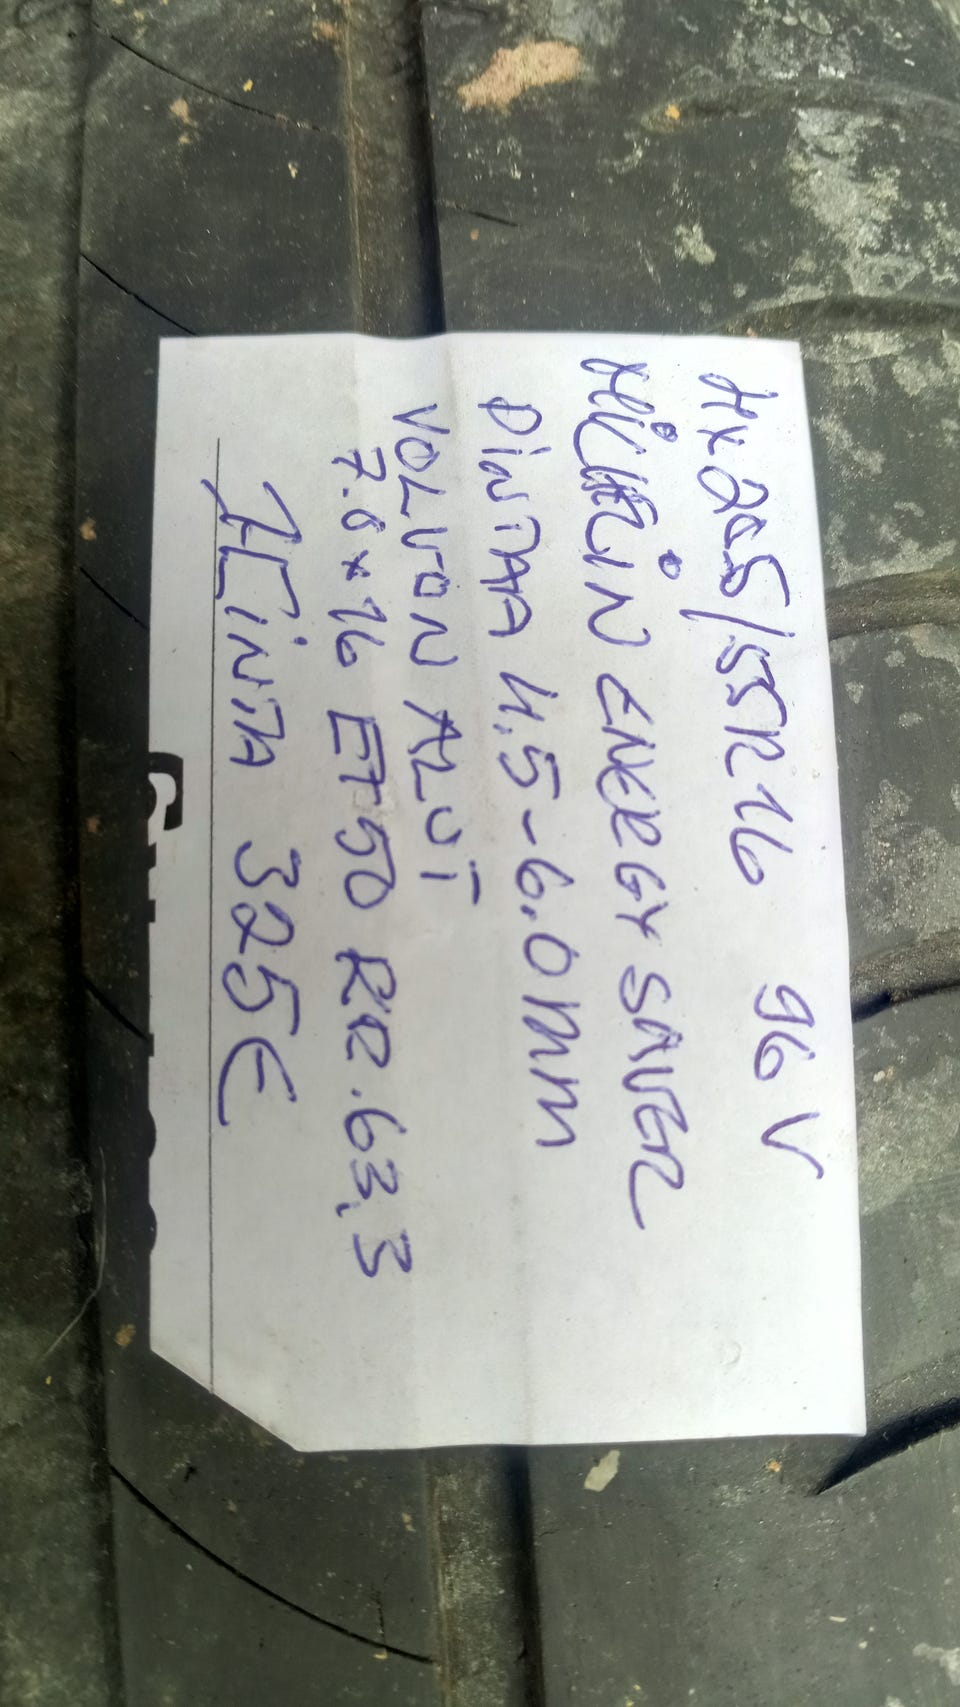 4x205/55R16 96V
MICHELIN ENERGY SAVER
PINTAA 4.5-6.0MM
VOLVON ALUT
7.0x16 ET50 KR.63,3
HINTA 325€